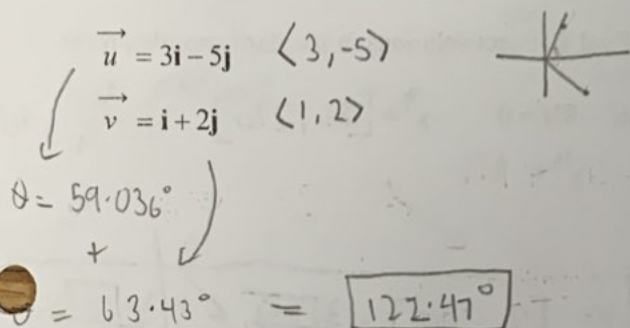 u = 3i − 5j ⟨3, -5⟩
v = i + 2j ⟨1, 2⟩
θ = 59.036°
+
θ = 63.43° = 122.47°